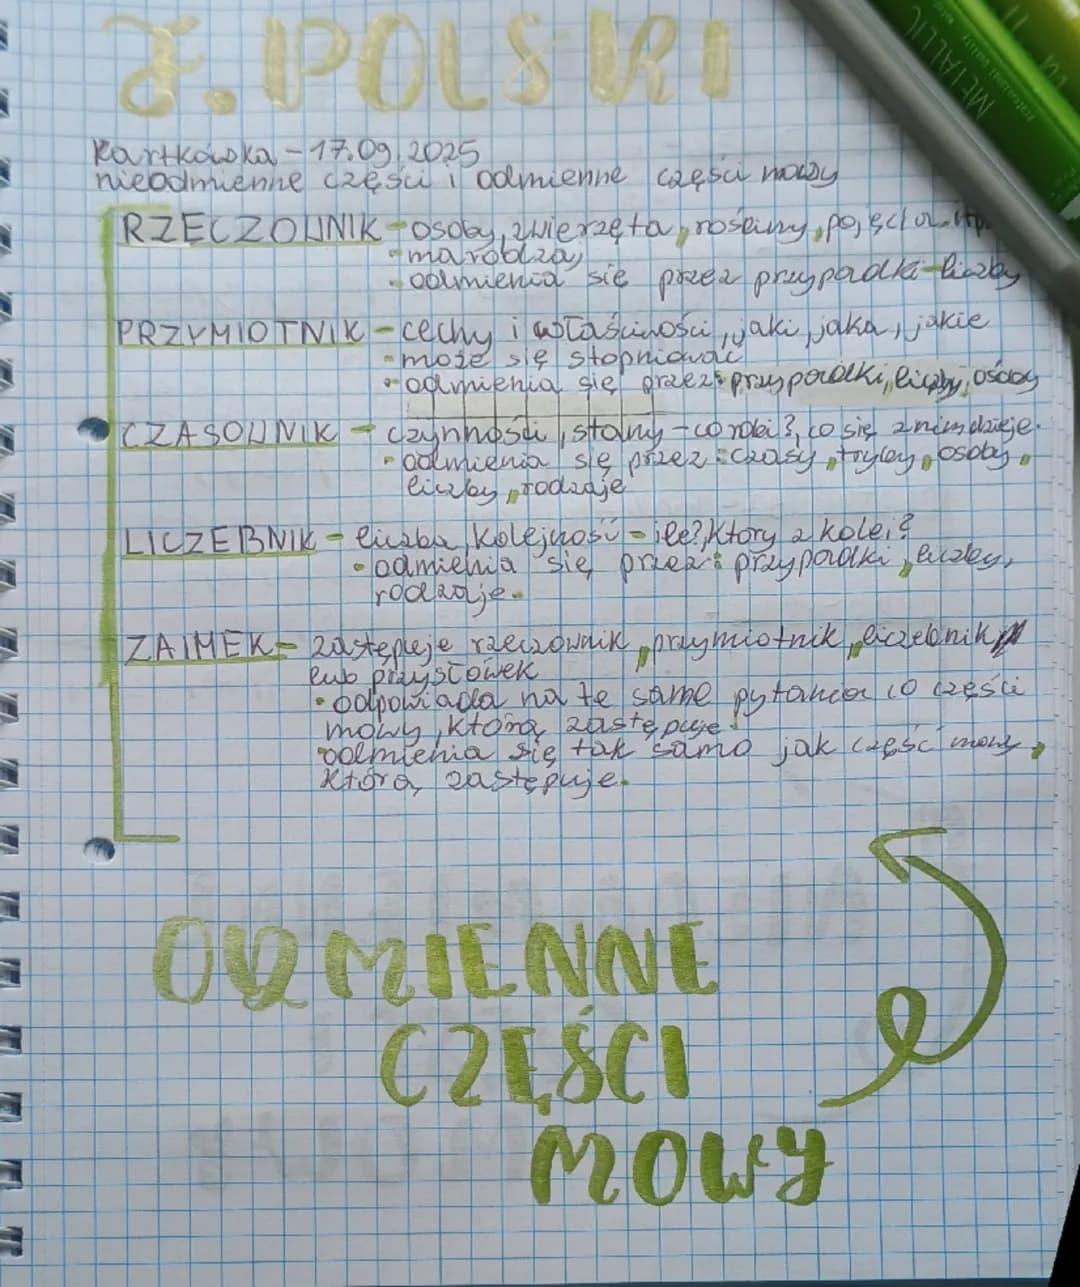 J. POLSKI
Kartkówka - 17.09.2025
nieodmienne części i odmienne części mowy
RZECZOWNIK - osoby, zwierzęta, rośliny, pojęcia itp.
• ma rodzaj
• odmienia się przez przypadki liczby
PRZYMIOTNIK - cechy i właściwości, jaki, jaka, jakie
• może się stopniować
• odmienia się przez: przypadki, liczby, osoby
CZASOWNIK - czynności, stany - co robi?, co się z nim dzieje.
• odmienia się przez: czasy, tryby, osoby,
liczby, rodzaje
LICZEBNIK - liczba, kolejność - ile?, który z kolei?
• odmienia się przez: przypadki, liczby,
rodzaje.
ZAIMEK - zastępuje rzeczownik, przymiotnik, liczebnik
lub przysłówek
• odpowiada na te same pytania co części
mowy, którą zastępuje.
• odmienia się tak samo jak część mowy,
którą zastępuje.
ODMIENNE
CZĘŚCI
MOWY
METALLIC